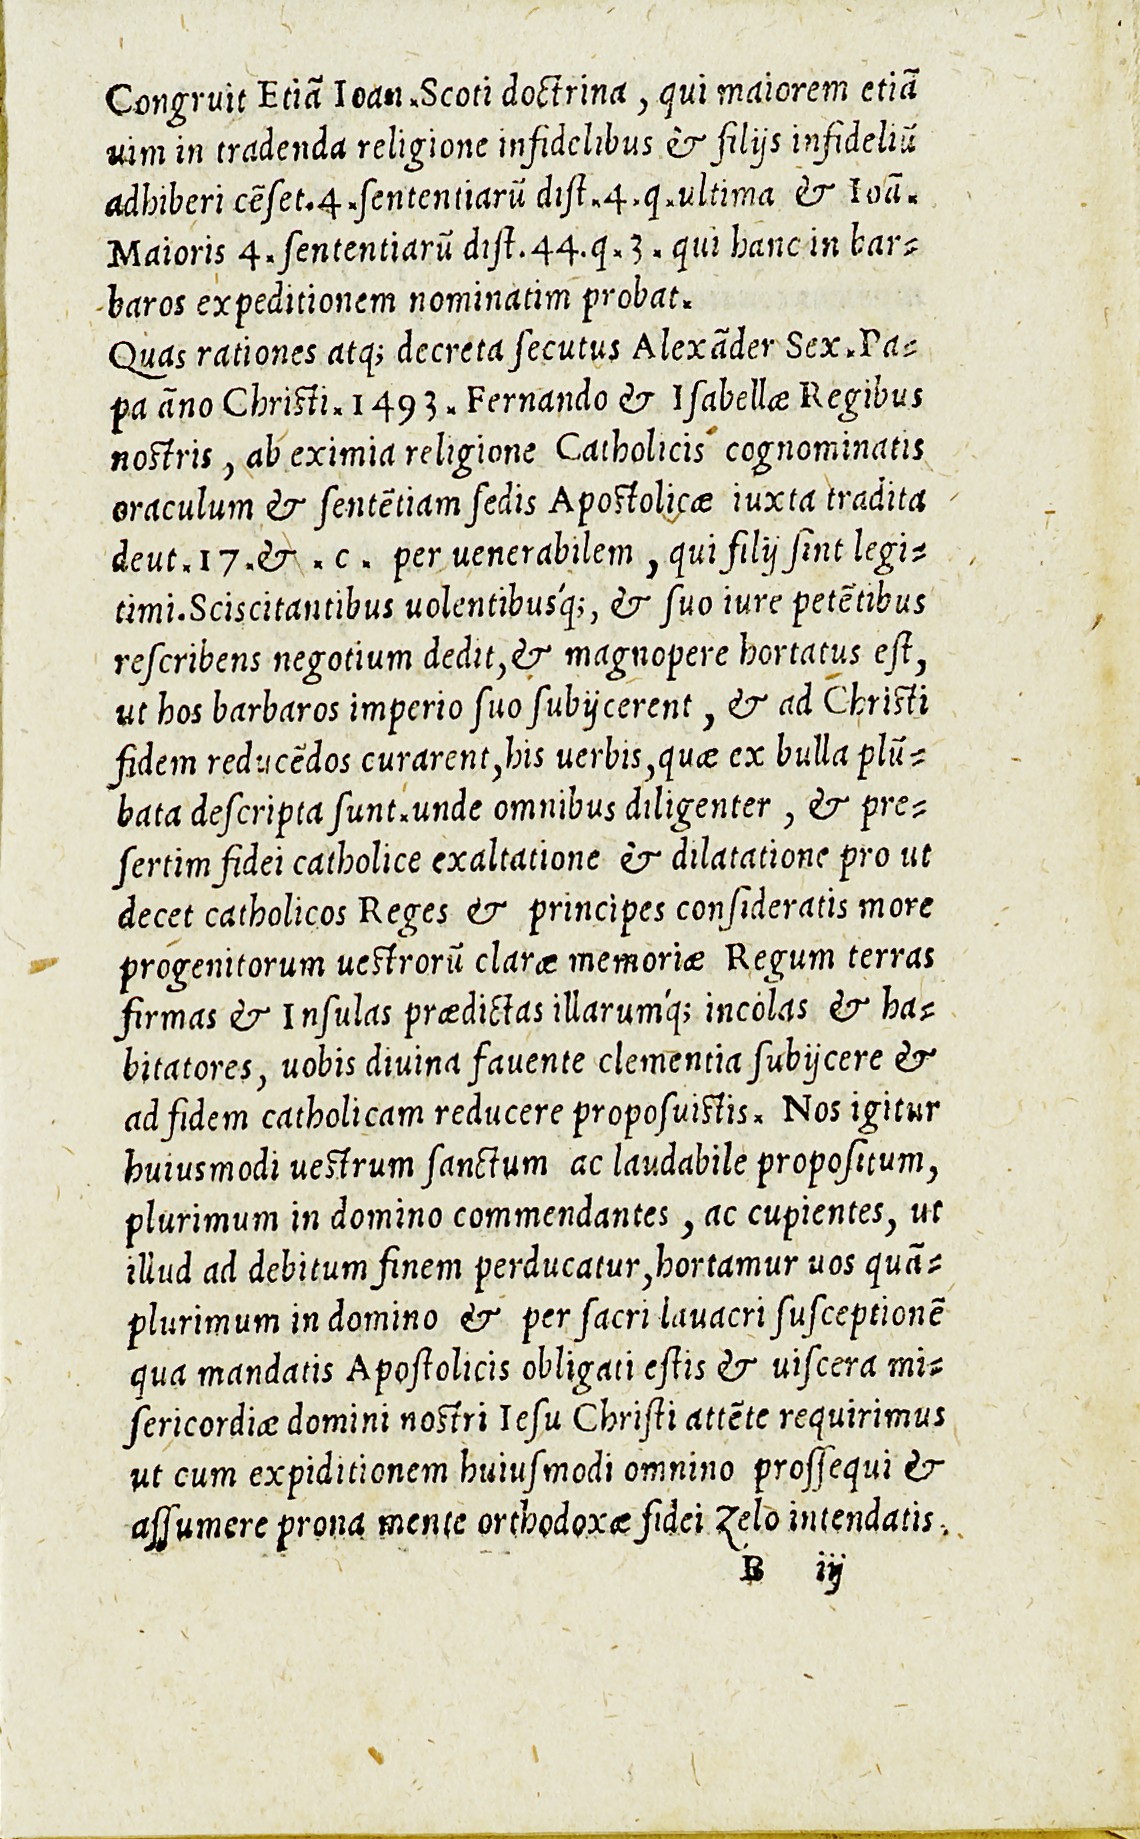 Congruit Etiã Ioan.Scoti doctrina, qui maiorem etiã
uim in tradenda religione infidelibus & filijs infideliũ
adhiberi cẽſet.4.ſententiarũ diſt.4.q.ultima & Ioã.
Maioris 4. ſententiarũ diſt.44.q.3. qui hanc in bar-
baros expeditionem nominatim probat.
Quas rationes atq; decreta ſecutus Alexãder Sex.Pa-
pa ãno Chriſti.1493. Fernando & Iſabellæ Regibus
noſtris, ab eximia religione Catholicis cognominatis
oraculum & ſentẽtiam ſedis Apoſtolicæ iuxta tradita
deut.17.& .c. per uenerabilem, qui filij ſint legi-
timi.Sciscitantibus uolentibuśq;, & ſuo iure petẽtibus
reſcribens negotium dedit,& magnopere hortatus eſt,
ut hos barbaros imperio ſuo ſubijcerent, & ad Chriſti
fidem reducẽdos curarent,his uerbis,quæ ex bulla plũ-
bata deſcripta ſunt.unde omnibus diligenter, & pre-
ſertim fidei catholice exaltatione & dilatatione pro ut
decet catholicos Reges & principes conſideratis more
progenitorum ueſtrorũ claræ memoriæ Regum terras
firmas & Inſulas prædictas illarumq́; incolas & ha-
bitatores, uobis diuina fauente clementia ſubijcere &
ad fidem catholicam reducere propoſuiſtis. Nos igitur
huiusmodi ueſtrum ſanctum ac laudabile propoſitum,
plurimum in domino commendantes, ac cupientes, ut
illud ad debitum finem perducatur,hortamur uos quã-
plurimum in domino & per ſacri lauacri ſuſceptionẽ
qua mandatis Apoſtolicis obligati eſtis & uiſcera mi-
ſericordiæ domini noſtri Ieſu Chriſti attẽte requirimus
ut cum expiditionem huiuſmodi omnino proſſequi &
aſſumere prona mente orthodoxæ fidei zelo intendatis.
B iij